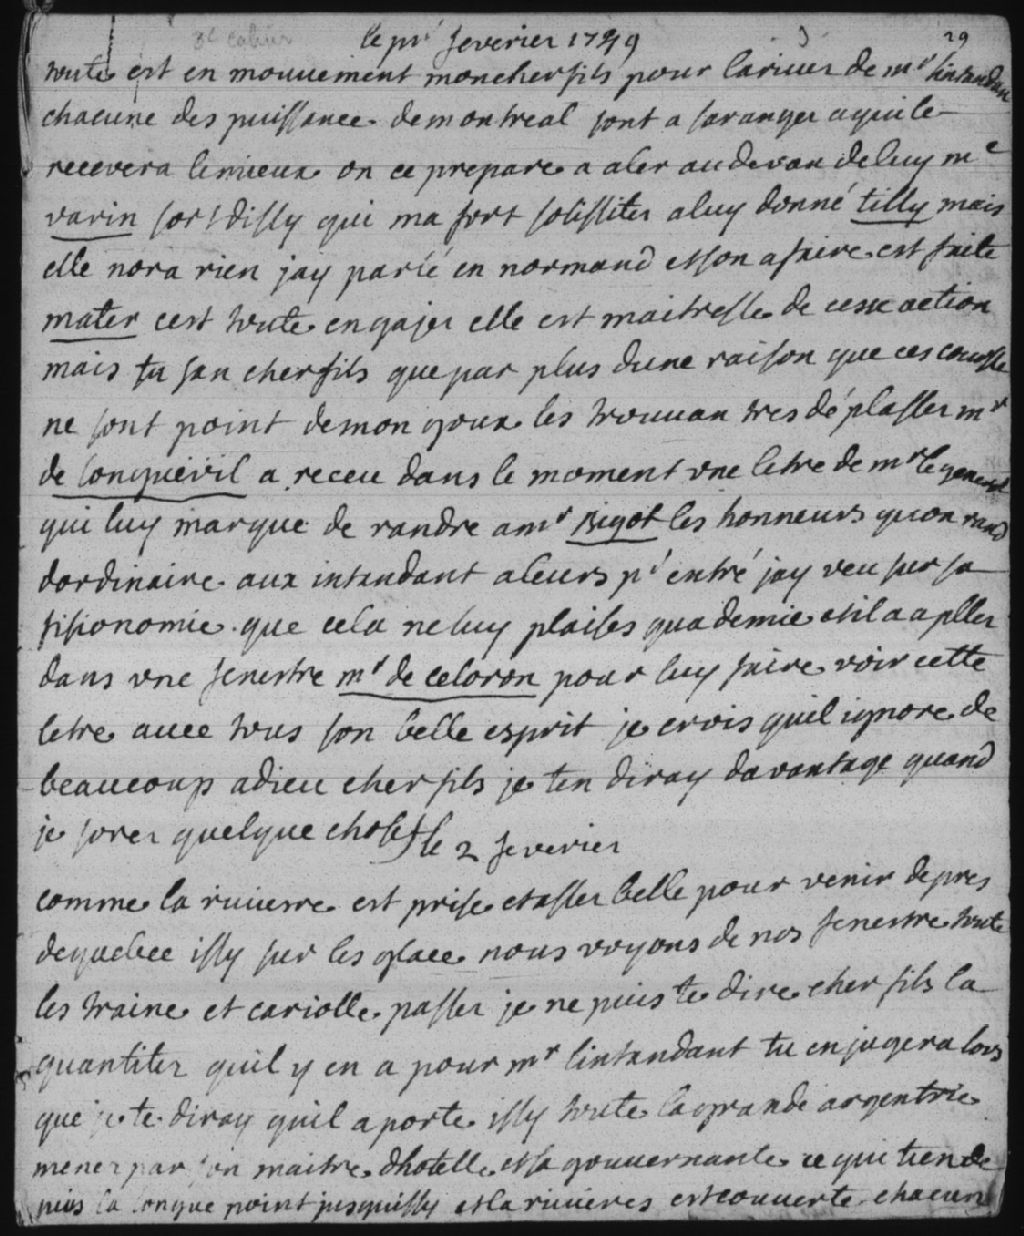 3e cahier
le pr feverier 1749
29
toute est en mouvement moncherfils pour larivee de mr lintandan
chacune des puissance demontreal sont a saranger aquile
recevera lemieux on ce prepare a aler audevan deluy me
varin sort dissy qui ma fort solissiter aluy donné tilly mais
elle nora rien jay parlé en normand etson afaire est faite
mater cest toute engajer elle est maitresse de cesse action
mais tu san cherfils que par plus dune raison que ces course
ne sont point demon goux les trouvan tres déplasser mr
de longuevil a receu dans le moment une letre de mr le general
qui luy marque de randre amr Bigot les honneurs quon rand
dordinaire aux intandant aleurs pr entré jay veu sur sa
fisionomie que cela neluy plaises qua demie etil a apller
dans une fenestre mr de celoron pour luy faire voir cette
letre avec tous son belle esprit je crois quil ignore de
beaucoup adieu cher fils je ten diray davantage quand
je sorer quelque chose
le 2 feverier
comme la rivierre est prise etasser belle pour venir depres
dequebec issy sur les glace nous voyons de nos fenestre toute
les traine et cariolle passer je ne puis te dire cher fils la
quantiter quil y en a pour mr lintandant tu enjugera lors
que je te diray quil aporte issy toute la grande argentrie
mener par son maitre dhotelle etsa gouvernante ce qui tien de
puis la longue point jusquissy etla rivieres estcouverte chacun